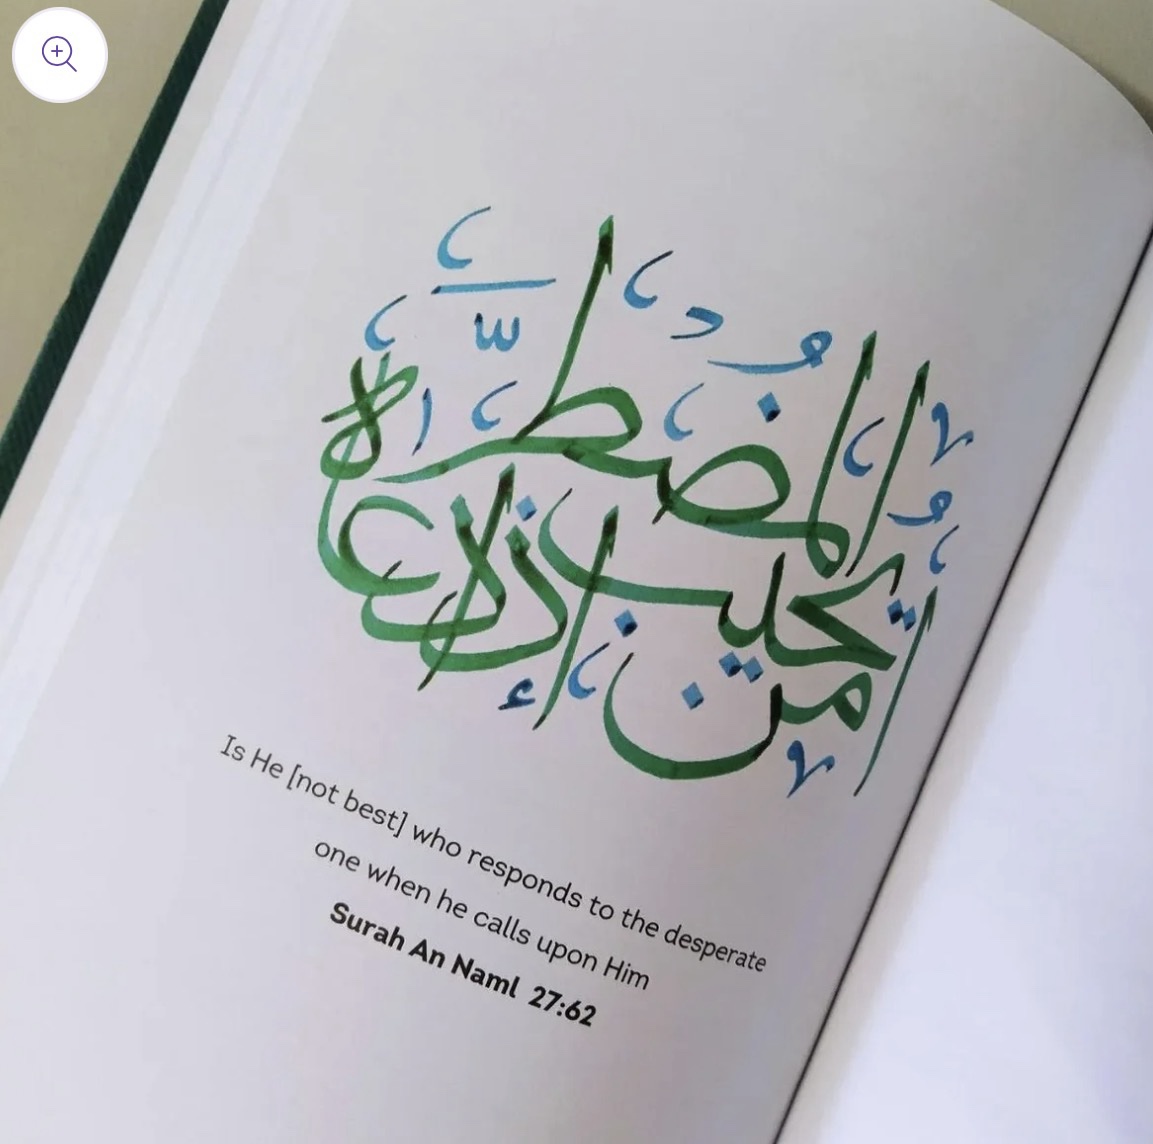 امن يجيب المضطر إذا دعاه
Is He [not best] who responds to the desperate
one when he calls upon Him
Surah An Naml 27:62